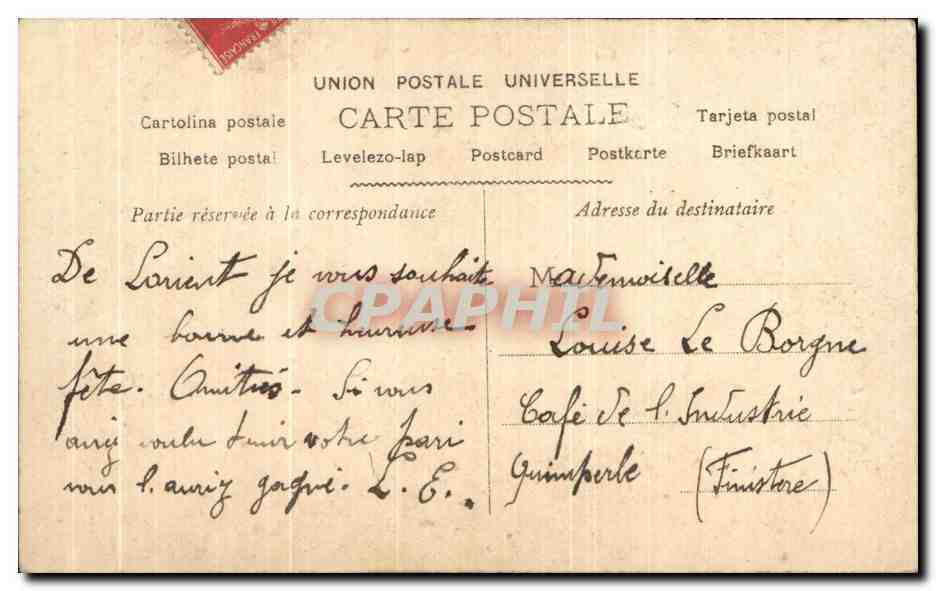 FRANÇAISE
UNION POSTALE UNIVERSELLE
CARTE POSTALE
Cartolina postale
Tarjeta postal
Bilhete postal Levelezo-lap Postcard Postkarte Briefkaart
Partie réservée à la correspondance
De Lorient je vous souhaite
une bonne et heureuse
fête. Amitiés. Si vous
aviez voulu tenir votre pari
vous l'auriez gagné. L. E.
Adresse du destinataire
Mademoiselle
Louise Le Borgne
Café de l'Industrie
Quimperlé (Finistere)
CPAPHIL